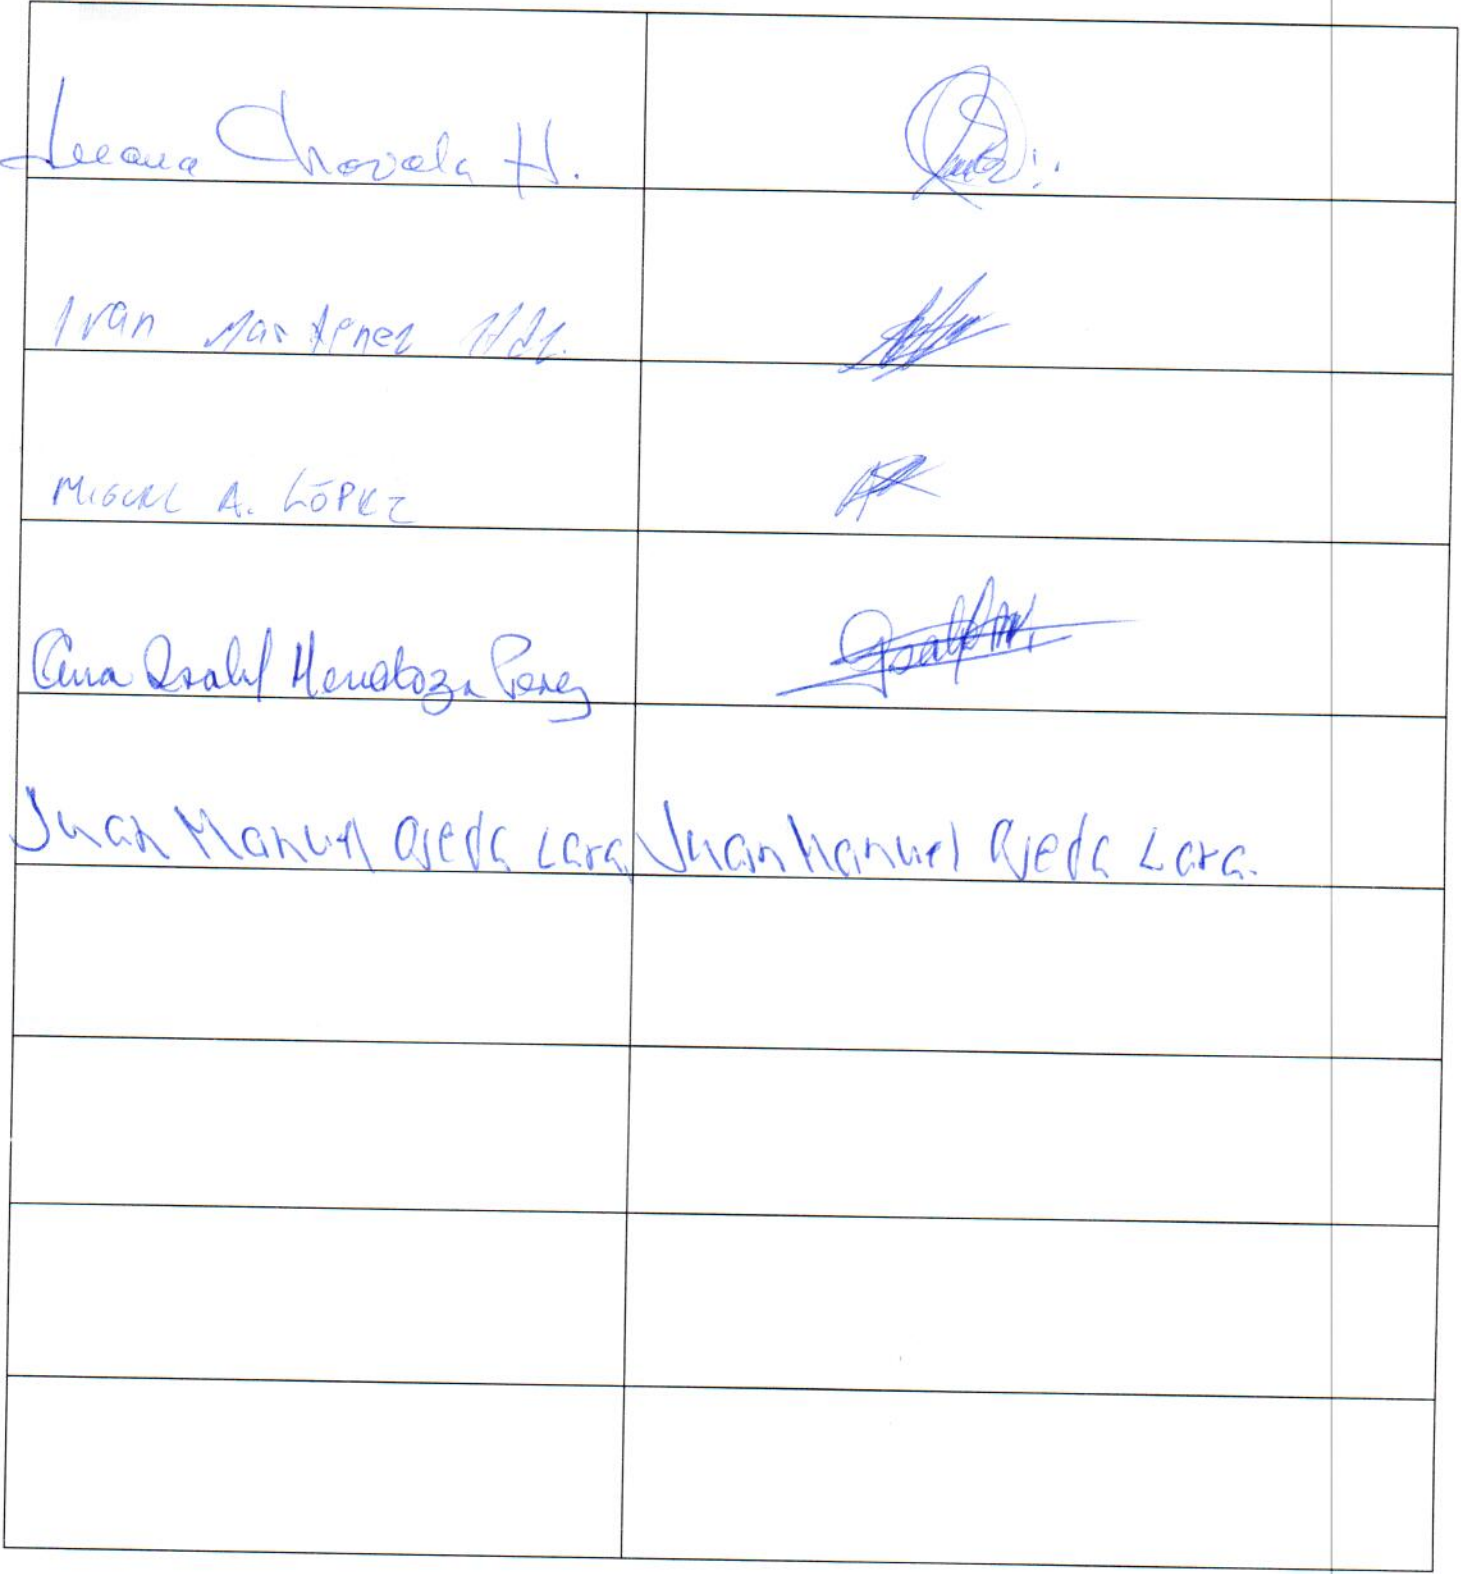 H.
Ivan Martinez Hdz.
MIGUEL A. LÓPEZ
Ana Isabel Mendoza Perez
Juan Manuel Ojeda Lara Juan Manuel Ojeda Lara.